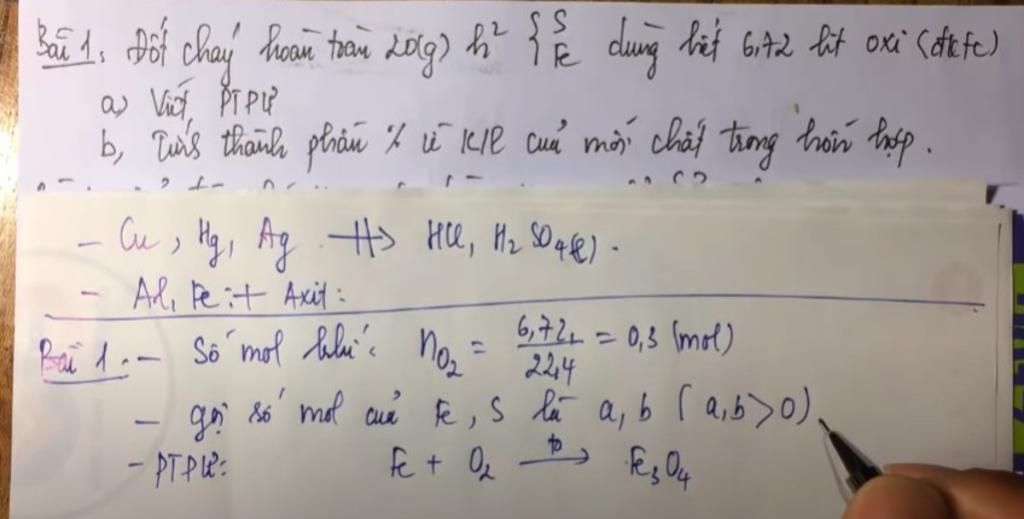 Bài 1: Đốt cháy hoàn toàn 20(g) h² { S Fe dùng hết 6,72 lit oxi (đktc)
a) Viết PTPƯ
b, Tính thành phần % về K/L của mỗi chất trong hỗn hợp.
- Cu, Hg, Ag -//-> HCl, H₂SO₄(l).
- Al, Fe: + Axit:
Bài 1: - Số mol khí: nO₂ = 6,72 / 22,4 = 0,3 (mol)
- gọi số mol của Fe, S là a, b (a,b>0)
- PTPƯ: Fe + O₂ --t°--> Fe₃O₄